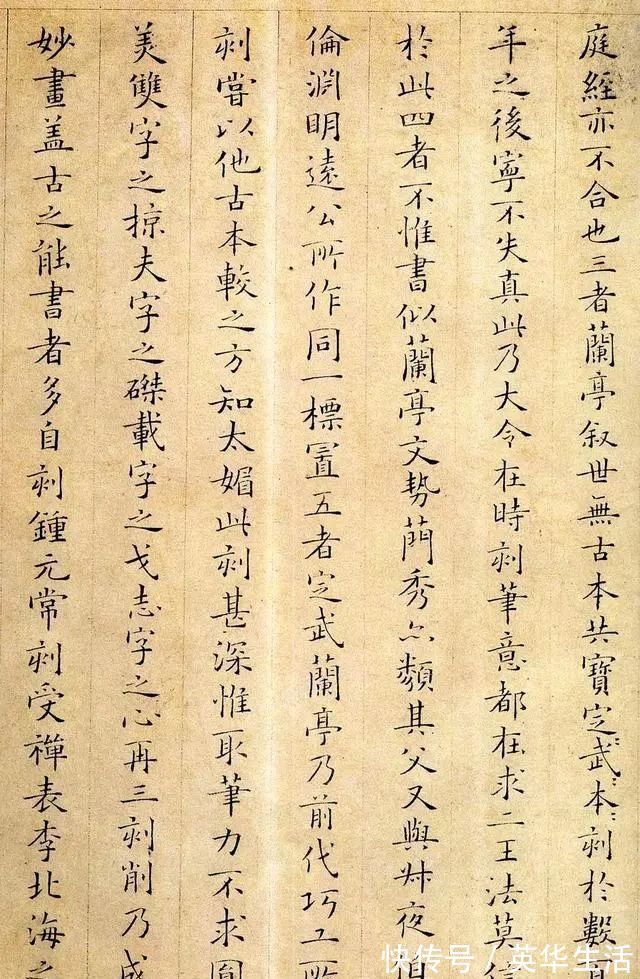 庭經亦不合也三者蘭亭叙世無古本共寶定武本刻於數
年之後寧不失真此乃大令在時刻筆意都在求二王法莫
於此四者不惟書似蘭亭文勢簡秀亦類其父又與叔夜
倫淵明遠公所作同一標置五者定武蘭亭乃前代巧工所
刻嘗以他古本較之方知太媚此刻甚深惟取筆力不求圓
美雙字之掠夫字之磔載字之戈志字之心再三刻削乃成
妙畫盖古之能書者多自刻鍾元常刻受禪表李北海之
快传号/英华生活